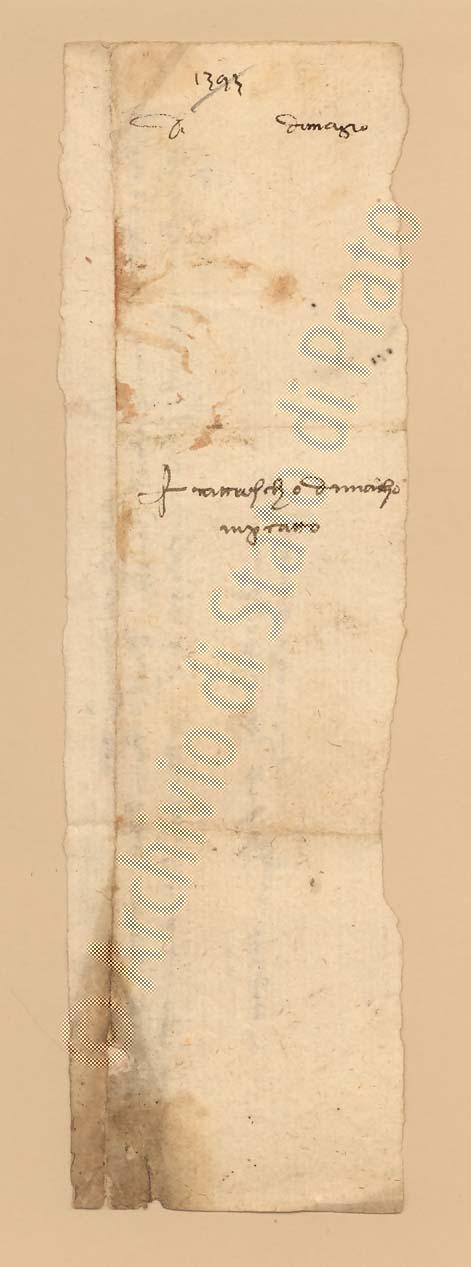 1393
D dimagio
Franciescho dimarcho
inprato
© Archivio di Stato di Prato